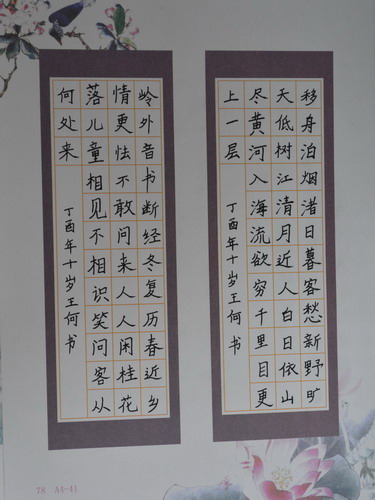 移舟泊烟渚日暮客愁新野旷
天低树江清月近人白日依山
尽黄河入海流欲穷千里目更
上一层
丁酉年十岁王何书
岭外音书断经冬复历春近乡
情更怯不敢问来人人闲桂花
落儿童相见不相识笑问客从
何处来
丁酉年十岁王何书
78 A4-41